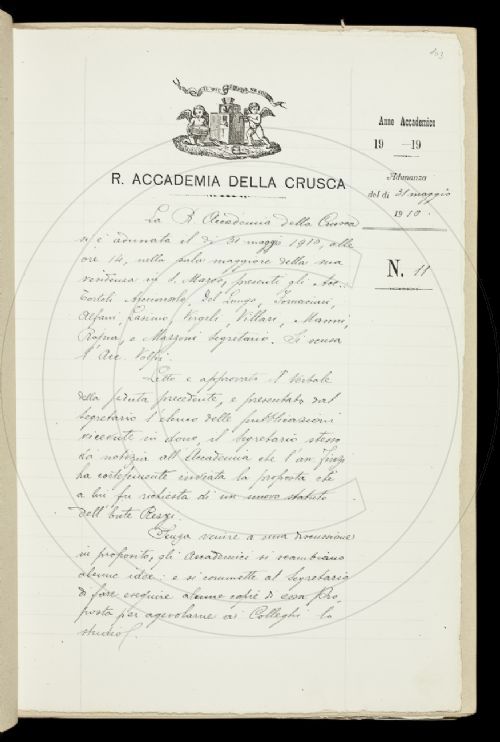 103
Anno Accademico
19 — 19
Adunanza
del dì 31 maggio
1910.
N. 11
R. ACCADEMIA DELLA CRUSCA
La R. Accademia della Crusca
si è adunata il dì 31 maggio 1910, alle
ore 14, nella sala maggiore della sua
residenza in S. Marco, presenti gli Acc.
Tortoli Arciconsolo, Del Lungo, Tommasini,
Alfani, Vergili, Villari, Manni,
Rajna, e Mazzoni Segretario. Si scusa
l'Acc. Volpi.
Letto e approvato il verbale
della seduta precedente, e presentato dal
Segretario l'elenco delle pubblicazioni
ricevute in dono, il Segretario stesso
dà notizia all'Accademia che l'avv.
ha cortesemente inviata la proposta che
a lui fu richiesta di un nuovo statuto
dell'Ente Rezzi.
Senza venire a una discussione
in proposito, gli Accademici si scambiano
alcune idee: e si commette al Segretario
di fare eseguire alcune copie di essa Pro-
posta per agevolarne ai Colleghi lo
studio.